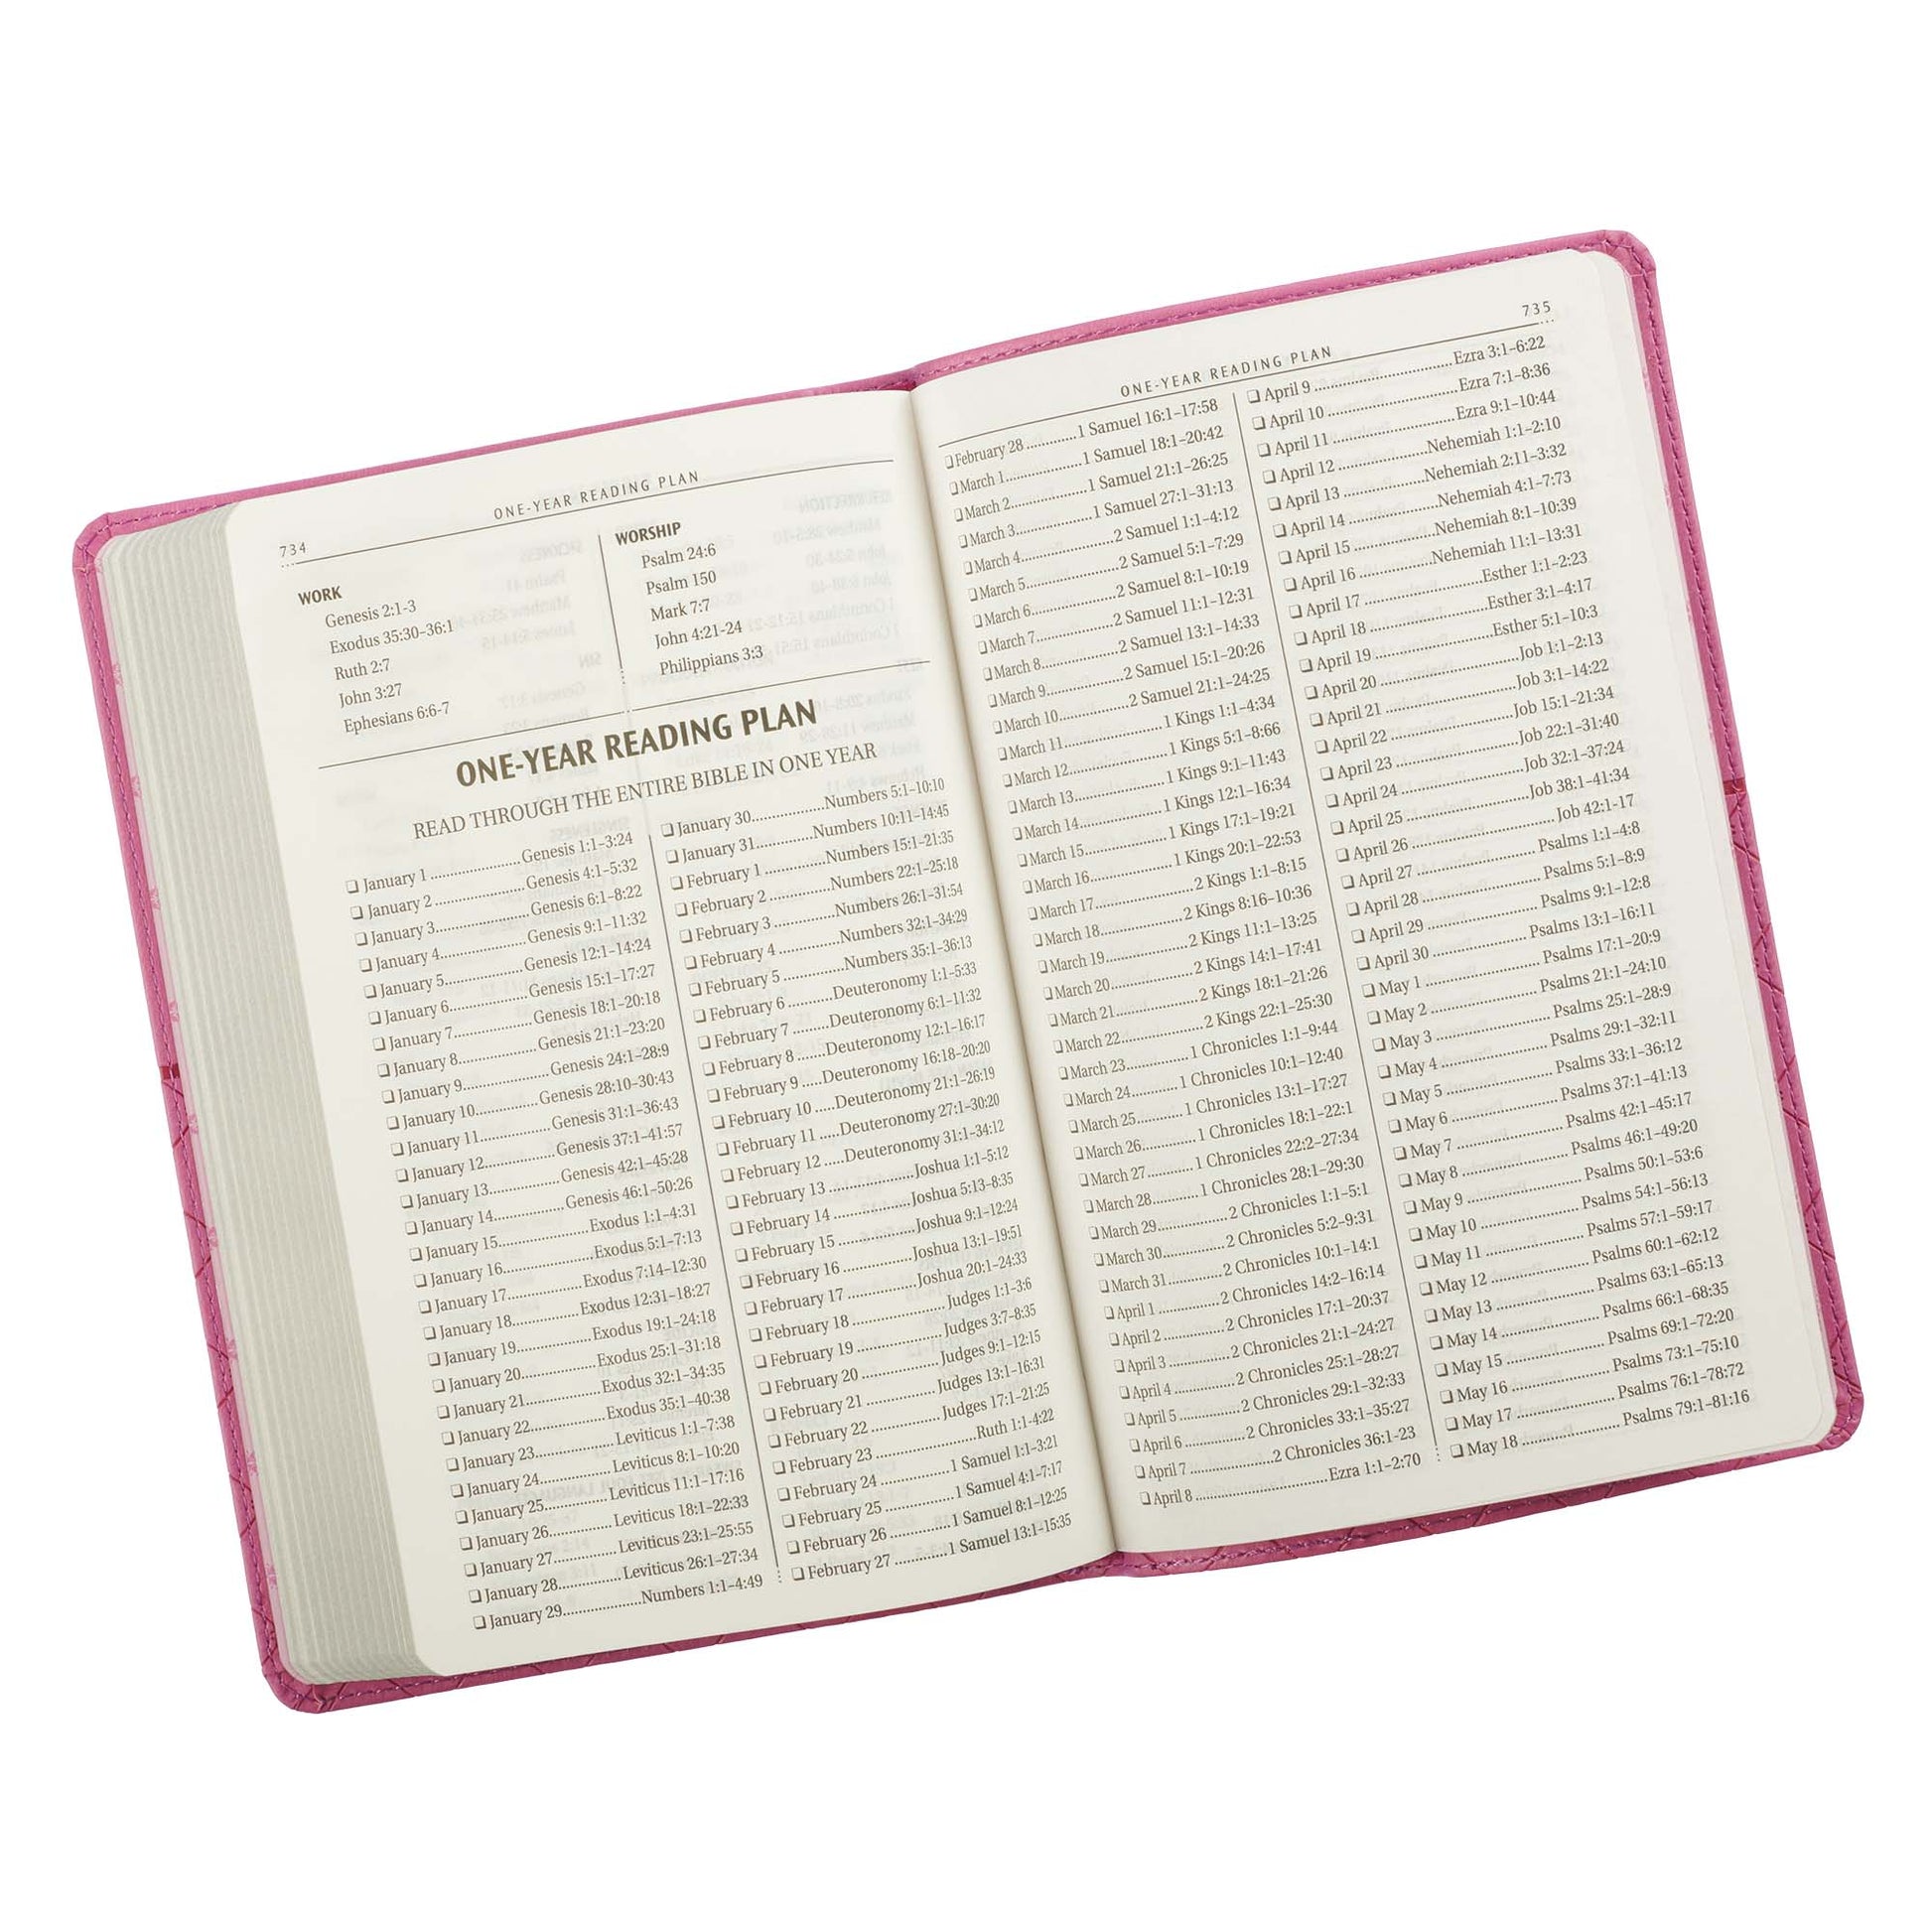 734
ONE-YEAR READING PLAN
WORK
Genesis 2:1-3
Exodus 35:30–36:1
Ruth 2:7
John 3:27
Ephesians 6:6-7
WORSHIP
Psalm 24:6
Psalm 150
Mark 7:7
John 4:21-24
Philippians 3:3
ONE-YEAR READING PLAN
READ THROUGH THE ENTIRE BIBLE IN ONE YEAR
❏ January 1 ..................Genesis 1:1–3:24
❏ January 2 ..................Genesis 4:1–5:32
❏ January 3..................Genesis 6:1–8:22
❏ January 4..................Genesis 9:1–11:32
❏ January 5..................Genesis 12:1–14:24
❏ January 6..................Genesis 15:1–17:27
❏ January 7..................Genesis 18:1–20:18
❏ January 8..................Genesis 21:1–23:20
❏ January 9..................Genesis 24:1–28:9
❏ January 10..................Genesis 28:10–30:43
❏ January 11..................Genesis 31:1–36:43
❏ January 12..................Genesis 37:1–41:57
❏ January 13..................Genesis 42:1–45:28
❏ January 14..................Genesis 46:1–50:26
❏ January 15..................Exodus 1:1–4:31
❏ January 16..................Exodus 5:1–7:13
❏ January 17..................Exodus 7:14–12:30
❏ January 18..................Exodus 12:31–18:27
❏ January 19..................Exodus 19:1–24:18
❏ January 20..................Exodus 25:1–31:18
❏ January 21..................Exodus 32:1–34:35
❏ January 22..................Exodus 35:1–40:38
❏ January 23..................Leviticus 1:1–7:38
❏ January 24..................Leviticus 8:1–10:20
❏ January 25..................Leviticus 11:1–17:16
❏ January 26..................Leviticus 18:1–22:33
❏ January 27..................Leviticus 23:1–25:55
❏ January 28..................Leviticus 26:1–27:34
❏ January 29..................Numbers 1:1–4:49
❏ January 30..................Numbers 5:1–10:10
❏ January 31..................Numbers 10:11–14:45
❏ February 1 ..................Numbers 15:1–21:35
❏ February 2 ..................Numbers 22:1–25:18
❏ February 3 ..................Numbers 26:1–31:54
❏ February 4 ..................Numbers 32:1–34:29
❏ February 5 ..................Numbers 35:1–36:13
❏ February 6 ..........Deuteronomy 1:1–5:33
❏ February 7 ........Deuteronomy 6:1–11:32
❏ February 8 ......Deuteronomy 12:1–16:17
❏ February 9 .....Deuteronomy 16:18–20:20
❏ February 10 .....Deuteronomy 21:1–26:19
❏ February 11 .....Deuteronomy 27:1–30:20
❏ February 12 .....Deuteronomy 31:1–34:12
❏ February 13 ..................Joshua 1:1–5:12
❏ February 14 ..................Joshua 5:13–8:35
❏ February 15 ..................Joshua 9:1–12:24
❏ February 16 ..................Joshua 13:1–19:51
❏ February 17 ..................Joshua 20:1–24:33
❏ February 18 ..................Judges 1:1–3:6
❏ February 19 ..................Judges 3:7–8:35
❏ February 20 ..................Judges 9:1–12:15
❏ February 21 ..................Judges 13:1–16:31
❏ February 22 ..................Judges 17:1–21:25
❏ February 23 ..................Ruth 1:1–4:22
❏ February 24 ..............1 Samuel 1:1–3:21
❏ February 25 ..............1 Samuel 4:1–7:17
❏ February 26 ..............1 Samuel 8:1–12:25
❏ February 27 .............1 Samuel 13:1–15:35
ONE-YEAR READING PLAN
735
❏ February 28 ............1 Samuel 16:1–17:58
❏ March 1..................1 Samuel 18:1–20:42
❏ March 2..................1 Samuel 21:1–26:25
❏ March 3..................1 Samuel 27:1–31:13
❏ March 4..................2 Samuel 1:1–4:12
❏ March 5..................2 Samuel 5:1–7:29
❏ March 6..................2 Samuel 8:1–10:19
❏ March 7..................2 Samuel 11:1–12:31
❏ March 8..................2 Samuel 13:1–14:33
❏ March 9..................2 Samuel 15:1–20:26
❏ March 10..................2 Samuel 21:1–24:25
❏ March 11..................1 Kings 1:1–4:34
❏ March 12..................1 Kings 5:1–8:66
❏ March 13..................1 Kings 9:1–11:43
❏ March 14..................1 Kings 12:1–16:34
❏ March 15..................1 Kings 17:1–19:21
❏ March 16..................1 Kings 20:1–22:53
❏ March 17..................2 Kings 1:1–8:15
❏ March 18..................2 Kings 8:16–10:36
❏ March 19..................2 Kings 11:1–13:25
❏ March 20..................2 Kings 14:1–17:41
❏ March 21..................2 Kings 18:1–21:26
❏ March 22..................2 Kings 22:1–25:30
❏ March 23..............1 Chronicles 1:1–9:44
❏ March 24............1 Chronicles 10:1–12:40
❏ March 25............1 Chronicles 13:1–17:27
❏ March 26............1 Chronicles 18:1–22:1
❏ March 27............1 Chronicles 22:2–27:34
❏ March 28............1 Chronicles 28:1–29:30
❏ March 29................2 Chronicles 1:1–5:1
❏ March 30..............2 Chronicles 5:2–9:31
❏ March 31.............2 Chronicles 10:1–14:1
❏ April 1 ...............2 Chronicles 14:2–16:14
❏ April 2 ...............2 Chronicles 17:1–20:37
❏ April 3 ...............2 Chronicles 21:1–24:27
❏ April 4 ...............2 Chronicles 25:1–28:27
❏ April 5 ...............2 Chronicles 29:1–32:33
❏ April 6 ...............2 Chronicles 33:1–35:27
❏ April 7 ..................2 Chronicles 36:1-23
❏ April 8 ..................Ezra 1:1–2:70
❏ April 9 ..................Ezra 3:1–6:22
❏ April 10 ..................Ezra 7:1–8:36
❏ April 11 ..................Ezra 9:1–10:44
❏ April 12 ..................Nehemiah 1:1–2:10
❏ April 13 ..................Nehemiah 2:11–3:32
❏ April 14 ..................Nehemiah 4:1–7:73
❏ April 15 ..................Nehemiah 8:1–10:39
❏ April 16 ..................Nehemiah 11:1–13:31
❏ April 17 ..................Esther 1:1–2:23
❏ April 18 ..................Esther 3:1–4:17
❏ April 19 ..................Esther 5:1–10:3
❏ April 20 ..................Job 1:1–2:13
❏ April 21 ..................Job 3:1–14:22
❏ April 22 ..................Job 15:1–21:34
❏ April 23 ..................Job 22:1–31:40
❏ April 24 ..................Job 32:1–37:24
❏ April 25 ..................Job 38:1–41:34
❏ April 26 ..................Job 42:1-17
❏ April 27 ..................Psalms 1:1–4:8
❏ April 28 ..................Psalms 5:1–8:9
❏ April 29 ..................Psalms 9:1–12:8
❏ April 30 ..................Psalms 13:1–16:11
❏ May 1 ..................Psalms 17:1–20:9
❏ May 2 ..................Psalms 21:1–24:10
❏ May 3 ..................Psalms 25:1–28:9
❏ May 4 ..................Psalms 29:1–32:11
❏ May 5 ..................Psalms 33:1–36:12
❏ May 6 ..................Psalms 37:1–41:13
❏ May 7 ..................Psalms 42:1–45:17
❏ May 8 ..................Psalms 46:1–49:20
❏ May 9 ..................Psalms 50:1–53:6
❏ May 10 ..................Psalms 54:1–56:13
❏ May 11 ..................Psalms 57:1–59:17
❏ May 12 ..................Psalms 60:1–62:12
❏ May 13 ..................Psalms 63:1–65:13
❏ May 14 ..................Psalms 66:1–68:35
❏ May 15 ..................Psalms 69:1–72:20
❏ May 16 ..................Psalms 73:1–75:10
❏ May 17 ..................Psalms 76:1–78:72
❏ May 18 ..................Psalms 79:1–81:16